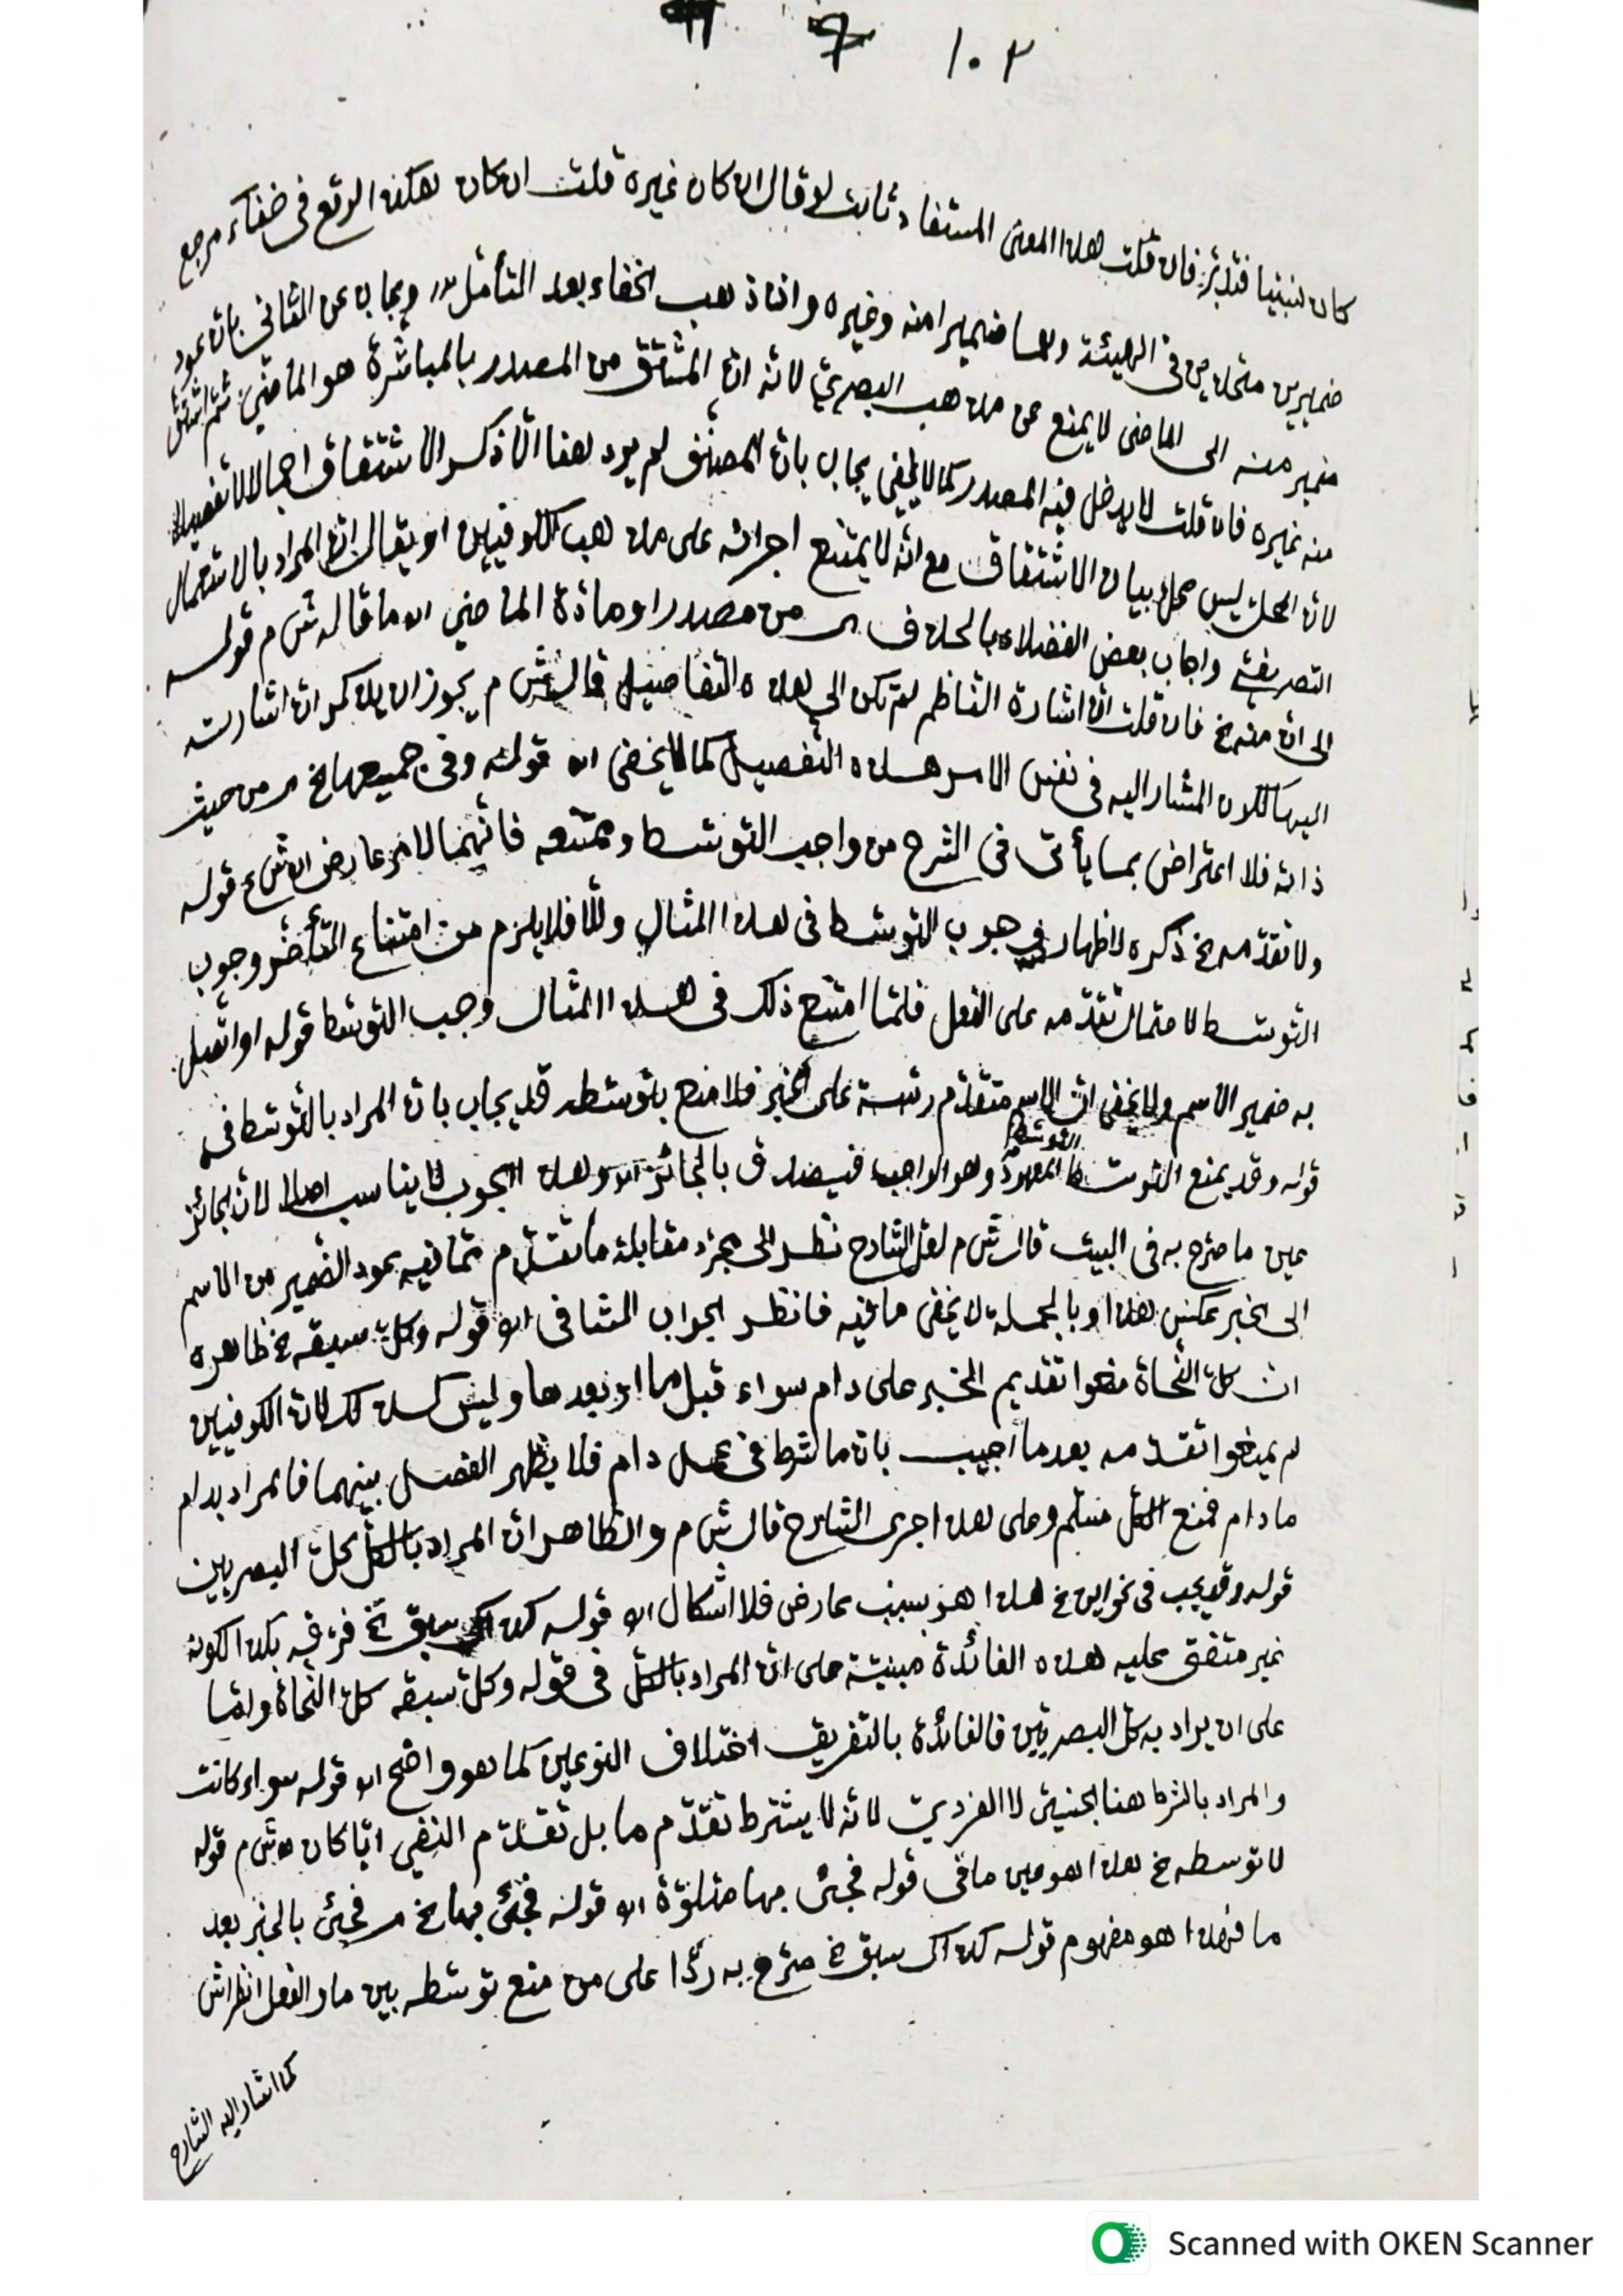 ١٠٢
كان لبنيا فتدبّر فان قلت هذا المعنى المستفاد ثابت لو قال ان كان غيره قلت ان كان لكنه الوقع فى خفاء مرجع
ضميرين متحدين فى الهيئة وهما ضميرا منه وغيره وانما ذهب الخفاء بعد التأمل ويجاب عن الثانى بان عود
ضمير منه الى الماضى لا يمنع عن مذهب البصرىّ لانه انّ المشتق من المصدر بالمباشرة هو الماضى ثم اشتق
منه غيره فان قلت لا يدخل فيه المصدر كما لا يخفى يجاب بانّ المصنف لم يرد هنا الّا ذكر الاشتقاق اجمالا لا تفصيلا
لانّ المحل ليس محل بيان الاشتقاق مع انّه لا يمتنع اجرائه على مذهب الكوفيين او يقال انّ المراد بالاستعمال
التصريفىّ واجاب بعض الفضلاء بالحذف من مصدر او مادة الماضى اه ما قاله ش م قوله
الى انّ منه خ فان قلت انّ اشارة الناظم لم تكن الى هذه التفاصيل قال ش م يجوز ان يذكر انّ اشارته
اليها لكون المشار اليه فى نفس الامر هذه التفصيل كما لا يخفى اه قوله وفى جميعها خ من حيث
ذاته فلا اعتراض بما يأتى فى الشرح من واجب التوسّط وممتنعه فانّهما لامر عارض اه ش ع قوله
ولا تقدّمه خ ذكره لاظهار وجوب التوسّط فى هذا المثال والّا فلا يلزم من امتناع التأخّر وجوب
التوسّط لاحتمال تقدّمه على الفعل فلمّا امتنع ذلك فى هذا المثال وجب التوسّط قوله او اتّصل
به ضمير الاسم ولا يخفى انّ الاسم متقدّم رتبة على الخبر فلا منع بتوسّطه قد يجاب بانّ المراد بالتوسّط فى
قوله وقد يمنع التوسّط التوسّط المعهود وهو الواجب فيصدق بالجائز اه وهذا الجواب لا يناسب اصلا لانّ الجائز
عين ما صرّح به فى البيت قال ش م لعلّ الشارح نظر الى مجرّد مقابلة ما تقدّم ممّا فيه عود الضمير من الاسم
الى الخبر عكس هذا وبالجملة لا يخفى ما فيه فانظر الجواب الشافى اه قوله وكلّ سبقه خ ظاهره
ان كلّ النّحاة منعوا تقديم الخبر على دام سواء قبل ما او بعدها وليس كذلك لانّ الكوفيين
لم يمنعوا تقدّمه بعد ما اجيب بانّ ما شرط فى عمل دام فلا يظهر الفصل بينهما فالمراد بدام
ما دام فمنع الكل مسلّم وعلى هذا جرى الشارح قال ش م والظاهر انّ المراد بالكلّ كلّ البصريين
قوله وقد يجب فى نحو اين خ هذا هو بسبب عارض فلا اشكال اه قوله كذاك سبق خ فرّقه بكذا لكونه
غير متفق عليه هذه الفائدة مبنيّة على انّ المراد بالكلّ فى قوله وكلّ سبقه كلّ النّحاة وامّا
على ان يراد به كلّ البصريّين فالفائدة بالتفريق اختلاف النوعين كما هو واضح اه قوله سواء كانت
والمراد بالشرط هنا الجنسىّ لا الفردىّ لانّه لا يشترط تقدّم ما بل تقدّم النفى ايّا كان ه ش م قوله
لا توسطه خ هذا هو عين ما فى قوله فجئ بها متلوّة اه قوله فجئ بها خ فجئ بالخبر بعد
ما فهذا هو مفهوم قوله كذاك سبق خ صرّح به ردّا على من منع توسّطه بين ما والفعل انظر اش
كما اشار اليه الشارح
Scanned with OKEN Scanner